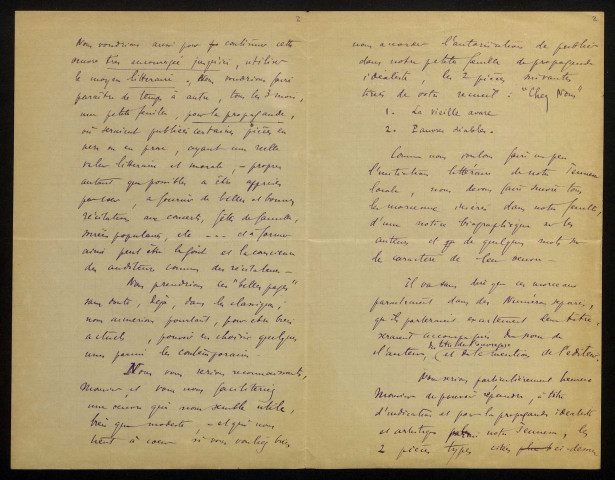 2
Nous voudrions aussi pour continuer cette
oeuvre très encouragée jusqu'ici, utiliser
le moyen littéraire. Nous voudrions faire
paraître de temps à autre, tous les 3 mois,
une petite feuille, pour la propagande,
où seraient publiées certaines pièces en
vers ou en prose, ayant une réelle
valeur littéraire et morale, - propres
autant que possible à être apprises
par coeur, à fournir de belles et bonnes
récitations aux concerts, fête de famille,
soirées populaires, etc --- et à former
ainsi peut être le goût et la conscience
des auditeurs comme des récitateurs -
Nous prendrions ces "belles pages"
sans doute, déjà, dans les classiques;
nous aimerions pourtant, pour être bien
actuels, pouvoir en choisir quelques
unes parmi les contemporains.
Nous vous serions reconnaissants,
Monsieur, et vous nous faciliteriez
une oeuvre qui nous semble utile,
bien que modeste, - et qui nous
tient à coeur si vous vouliez bien
2
nous accorder l'autorisation de publier
dans notre petite feuille de propagande
idéaliste, les 2 pièces suivantes
tirées de votre recueil: "Chez Nous"
1. La vieille avare
2. Pauvres diables.
Comme nous voulons faire un peu
l'initiation littéraire de notre jeunesse
locale, nous devons faire suivre tous
les morceaux insérés dans notre feuille,
d'une notice biographique sur les
auteurs et de quelques mots sur
le caractère de leur oeuvre -
Il va sans dire que ces morceaux
paraîtraient dans des numéros séparés,
qu'ils porteraient exactement leur titre,
seraient accompagnés du nom de
l'auteur, (et de la mention de l'éditeur.
du titre de l'ouvrage
Nous serions particulièrement heureux
Monsieur de pouvoir répandre, à titre
d'indication et pour la propagande idéaliste
et artistique parmi notre jeunesse, les
2 pièces types citées ci-dessus